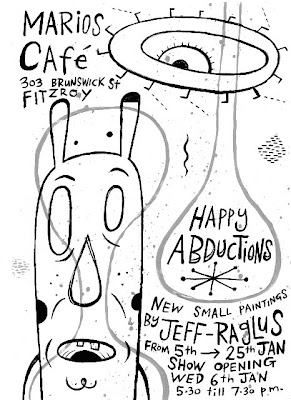 MARIOS
CAFé
303 BRUNSWICK St
FITZROY
HAPPY
ABDUCTIONS
NEW SMALL PAINTINGS
BY JEFF-RAGLUS
FROM 5th → 25th JAN
SHOW OPENING
WED 6th JAN
5.30 till 7.30 p.m.